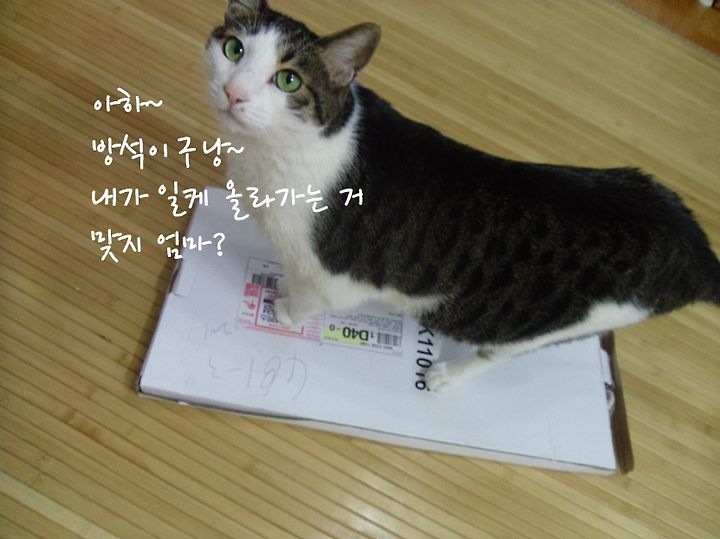 아하~
방석이구낭~
내가 일케 올라가는 거
맞지 엄마?
1D40-0
K11016
481-3